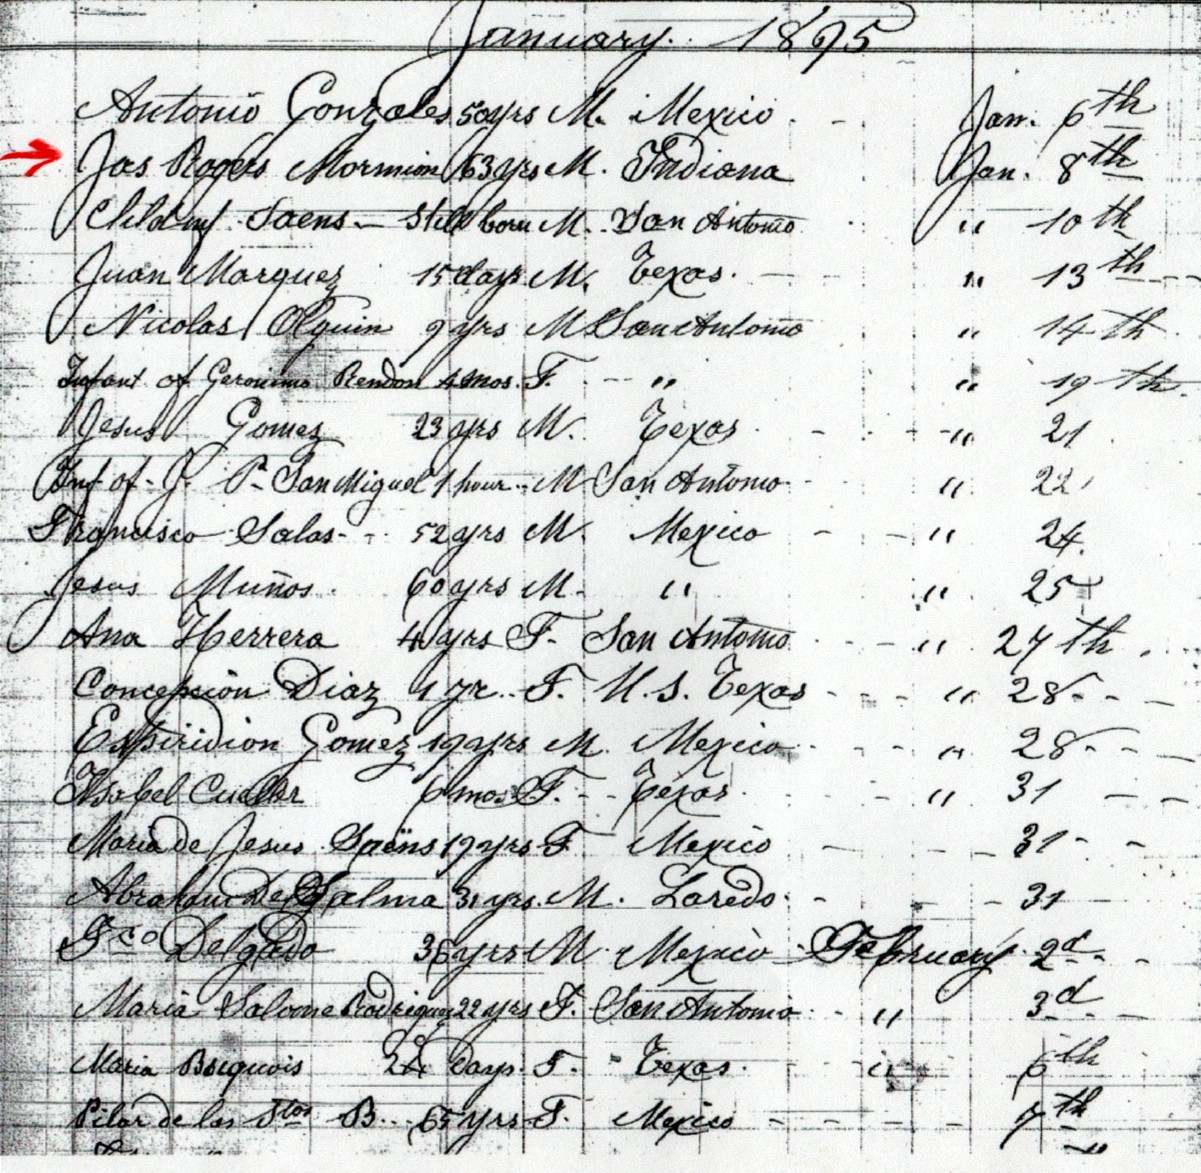 January. 1895
Antonio Gonzales 50 yrs M. Mexico - - Jan. 6th
Jas Rogers Mormion 63 yrs M. Indiana Jan. 8th
Child of Saens - Still born M. San Antonio " 10th
Juan Marquez 15 days M. Texas. - " 13th - -
Nicolas Olguin 9 yrs M San Antonio " 14th
Infant of Geronimo Rendon 4 mos. F. - - " " 19th.
Jesus Gomez 23 yrs M. Texas - - - " 21
Inf of - J. P. San Miguel 1 hour - M San Antonio - " 22
Francisco Salas - - 52 yrs M. Mexico - - - " 24.
Jesus Muños. 60 yrs M. " " 25
Ana Herrera 4 yrs F. San Antonio - - - " 27th . . .
Concepcion Diaz 1 yr. F. U.S. Texas - - - " 28 - -
Espiridion Gomez 19 yrs M. Mexico - - - " 28 - - -
Ysabel Cuellar 6 mos F. - - Texas - - - " 31 - -
Maria de Jesus Saëns 19 yrs F. Mexico - - - - 31 - -
Abraham De Palma 31 yrs. M. Laredo - - - - 31
Fco Delgado 36 yrs M Mexico - February 2d - -
Maria Rodriguez 22 yrs F. San Antonio - - " 3d
Maria 24 Days. F. Texas. - - " 6th
Pilar de los Stos B. 65 yrs F. Mexico - - - - - 7th